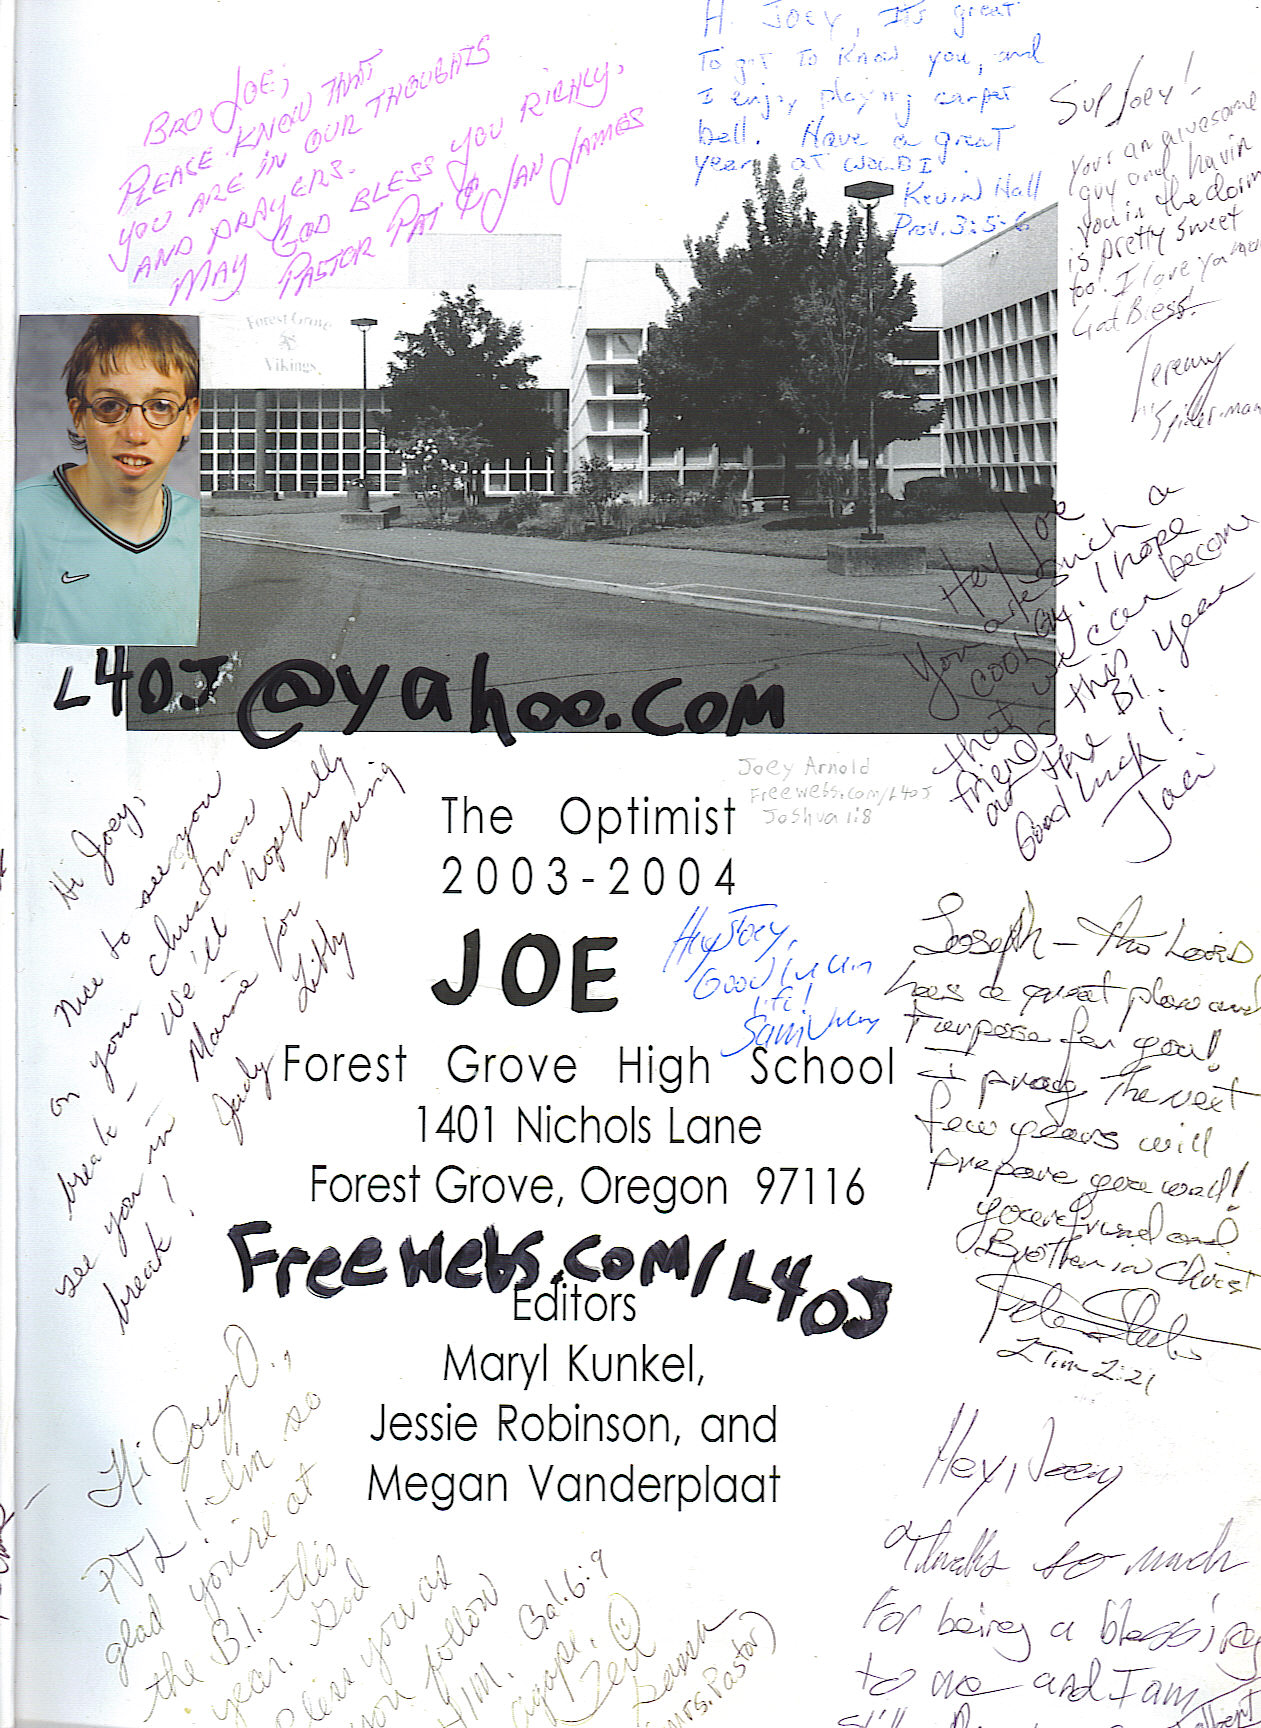 BRO JOE;
PLEASE KNOW THAT
YOU ARE IN OUR THOUGHTS
AND PRAYERS.
MAY GOD BLESS YOU RICHLY,
PASTOR PAT & JAN JAMES
Hi Joey, It's great
to get to know you, and
I enjoy playing carpet
ball. Have a great
year at WOLBI.
Kevin Hall
Prov. 3:5-6
Sup Joey!
Your an awesome
guy and havin
you in the dorm
is pretty sweet
too! I love ya man
God Bless!
Jeremy
Spider-man
Forest Grove
Vikings
Hey Joe
You are such a
cool guy. I hope
that we can become
friends this year
at the BI.
Good luck!
Jaci
L4OJ@yahoo.com
Joey Arnold
Freewebs.com/L4OJ
Joshua 1:8
The Optimist
2003-2004
JOE
Hey Joey,
Good luck in
life!
Sam
Hi Joey,
Nice to see you
on your christmas
break - We'll hopefully
see you in Maine for spring
break!
Judy Libby
Joseph - The Lord
has a great plan and
Purpose for you!
I pray the next
few years will
prepare you well!
your friend and
Brother in Christ
Pete
2 Tim 2:21
Forest Grove High School
1401 Nichols Lane
Forest Grove, Oregon 97116
Freewebs.com/L4OJ
Editors
Maryl Kunkel,
Jessie Robinson, and
Megan Vanderplaat
Hi Joey O.,
PTL! I'm so
glad you're at
the B.I. this
year. God
Bless you as
you follow
HIM. Gal. 6:9
agape,
(mrs. Pastor)
Hey, Joey
Thanks so much
For being a blessing
to me and I am
still